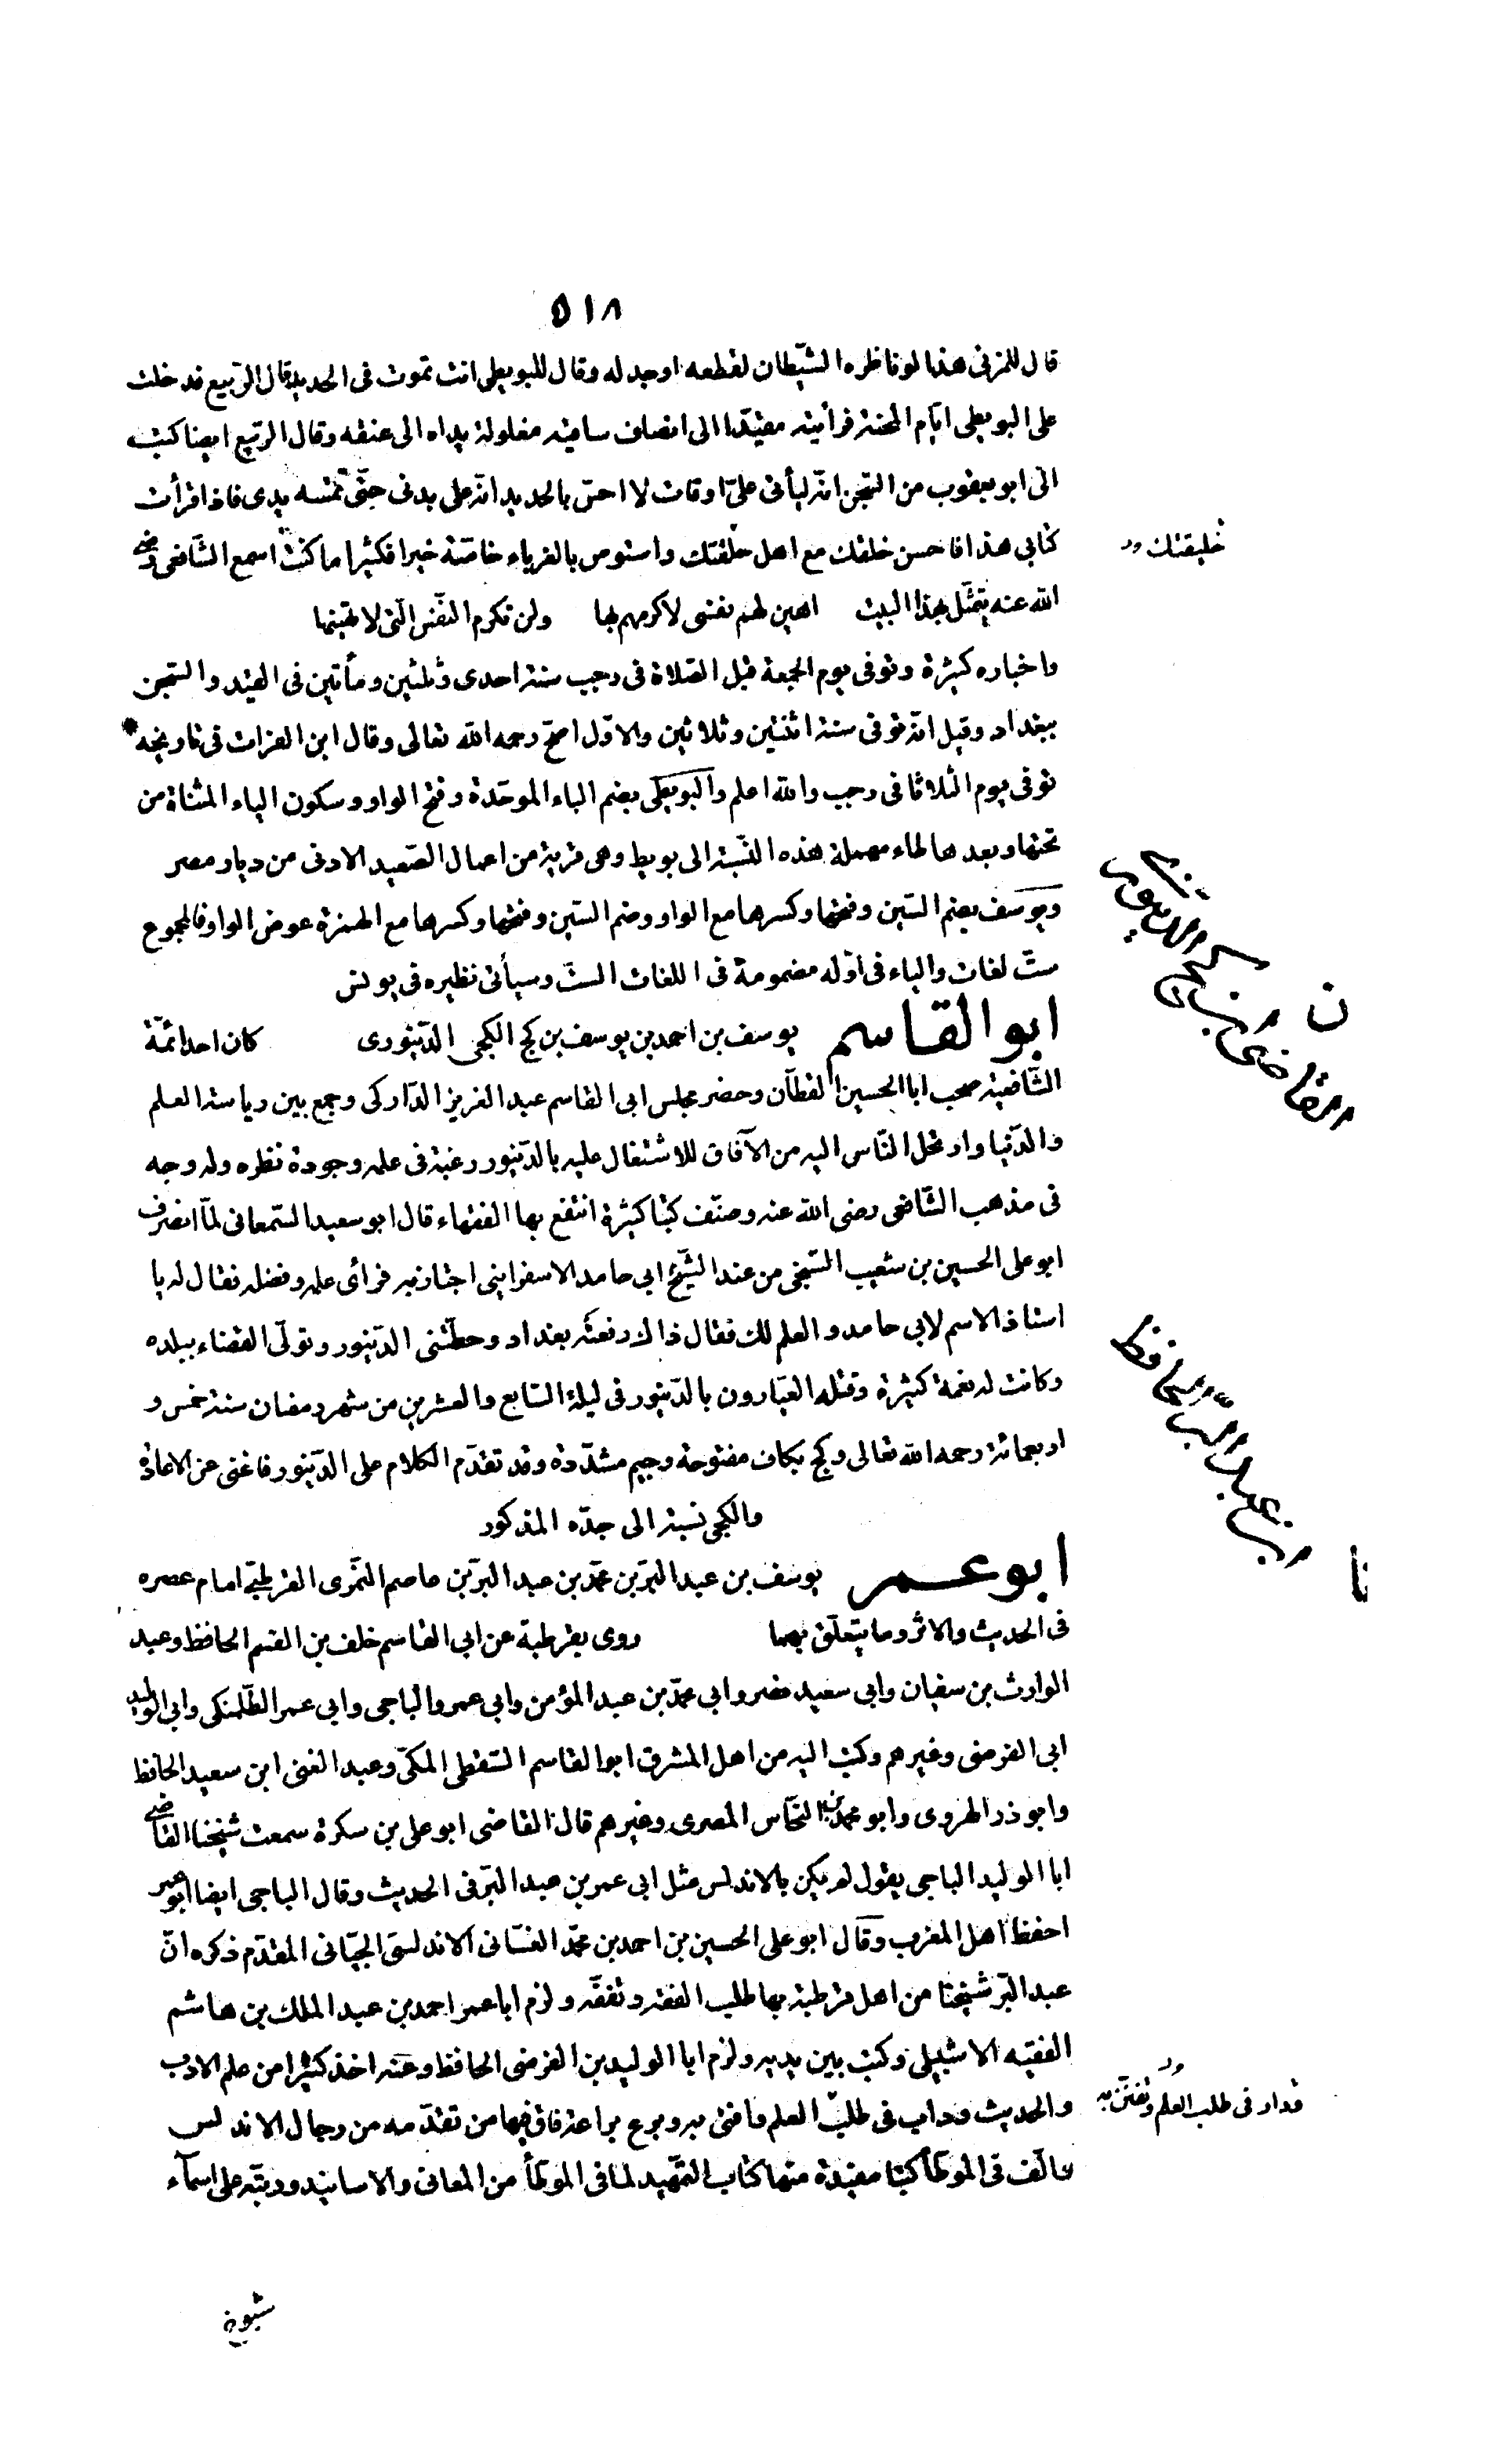 ٥١٨
قال للمزنى هذا لو ناظره الشيطان لقطعه او جدله وقال للبويطى انت تموت فى الحديد قال الربيع فدخلت
على البويطى ايام المحنة فرأيته مقيدا الى انصاف ساقيه مغلولة يداه الى عنقه وقال الربيع ايضا كتب
الى ابو يعقوب من السجن انه ليأتى علىّ اوقات لا احس بالحديد انه على بدنى حتى تمسه يدى فاذا قرأت
كتابى هذا فاحسن خلقك مع اهل حلقتك واستوص بالغرباء خاصة خيرا فكثيرا ما كنت اسمع الشافعى رضى
خليقتك
الله عنه يتمثل بهذا البيت اهين لهم نفسى لاكرمهم بها ولن تكرم النفس التى لا تهينها
واخباره كثيرة وتوفى يوم الجمعة قبل الصلاة فى رجب سنة احدى وثلثين ومأتين فى القيد والسجن
ببغداد وقيل انه توفى سنة اثنتين وثلاثين والاول اصح رحمه الله تعالى وقال ابن الفرات فى تاريخه
توفى يوم الثلاثا فى رجب والله اعلم والبويطى بضم الباء الموحدة وفتح الواو وسكون الياء المثناة من
تحتها وبعدها طاء مهملة هذه النسبة الى بويط وهى قرية من اعمال الصعيد الادنى من ديار مصر
ويوسف بضم السين وفتحها وكسرها مع الواو وضم السين وفتحها وكسرها مع الهمزة عوض الواو فالمجموع
ستّ لغات والياء فى اوله مضمومة فى اللغات الستّ وسيأتى نظيره فى يونس
القاضى ابن كج الدينورى
ابو القاسم يوسف بن احمد بن يوسف بن كج الكجى الدينورى كان احد ائمة
الشافعية صحب ابا الحسين القطان وحضر مجلس ابى القاسم عبد العزيز الداركى وجمع بين رياسة العلم
والدنيا وارتحل الناس اليه من الآفاق للاشتغال عليه بالدينور رغبة فى علمه وجودة نظره وله وجه
فى مذهب الشافعى رضى الله عنه وصنف كتبا كثيرة انتفع بها الفقهاء قال ابو سعيد السمعانى لما انصرف
ابو على الحسين بن شعيب السنجى من عند الشيخ ابى حامد الاسفراينى اجتاز به فرأى علمه وفضله فقال له يا
استاذ الاسم لابى حامد والعلم لك فقال ذاك رفعته بغداد وحطّتنى الدينور وتولى القضاء ببلده
وكانت له نعمة كثيرة وقتله العيارون بالدينور فى ليلة السابع والعشرين من شهر رمضان سنة خمس و
اربعمائة رحمه الله تعالى وكج بكاف مفتوحة وجيم مشددة وقد تقدم الكلام على الدينور فاغنى عن الاعادة
والكجى نسبة الى جده المذكور
ابن عبد البر الحافظ
ابو عمر يوسف بن عبد البر بن محمد بن عبد البر بن عاصم النمرى القرطبى امام عصره
فى الحديث والاثر وما يتعلق بهما روى بقرطبة عن ابى القاسم خلف بن القسم الحافظ وعبد
الوارث بن سفيان وابى سعيد نصر وابى محمد بن عبد المؤمن وابى عمرو الباجى وابى عمر الطلمنكى وابى الوليد
ابى الفرضى وغيرهم وكتب اليه من اهل المشرق ابو القاسم السقطى المكى وعبد الغنى ابن سعيد الحافظ
وابو ذر الهروى وابو محمد بن النحاس المصرى وغيرهم قال القاضى ابو على بن سكرة سمعت شيخنا القاضى
ابا الوليد الباجى يقول لم يكن بالاندلس مثل ابى عمر بن عبد البر فى الحديث وقال الباجى ايضا ابو عمر
احفظ اهل المغرب وقال ابو على الحسين بن احمد بن محمد الغسانى الاندلسى الجيانى المقدم ذكره انّ
عبد البر شيخنا من اهل قرطبة بها طلب الفقه وتفقه ولزم ابا عمر احمد بن عبد الملك بن هاشم
الفقيه الاشبيلى وكتب بين يديه ولزم ابا الوليد بن الفرضى الحافظ وعنه اخذ كثيرا من علم الادب
والحديث وداب فى طلب العلم وافتى به وبرع براعة فاق فيها من تقدمه من رجال الاندلس
فدار فى طلب العلم وتفنن به
والّف فى الموطأ كتبا مفيدة منها كتاب التمهيد لما فى الموطأ من المعانى والاسانيد ورتبه على اسماء
شيوخ